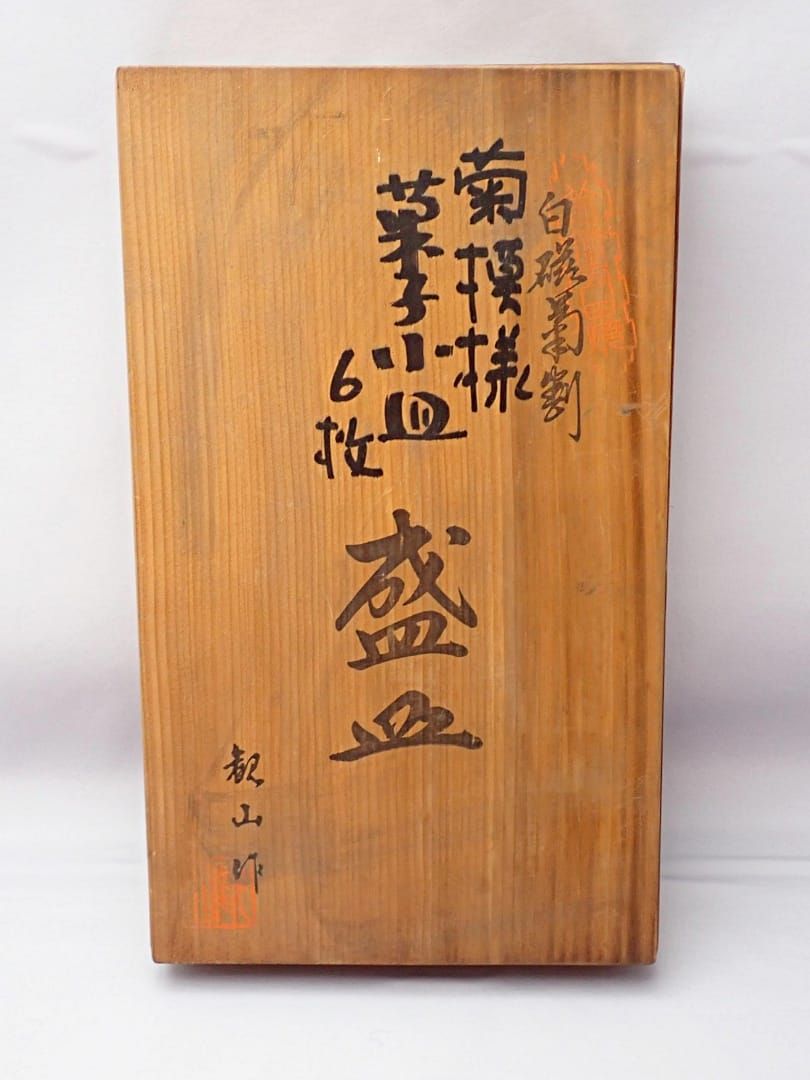 白磁菊割
菊模様
菓子小皿
6枚
盛皿
観山作